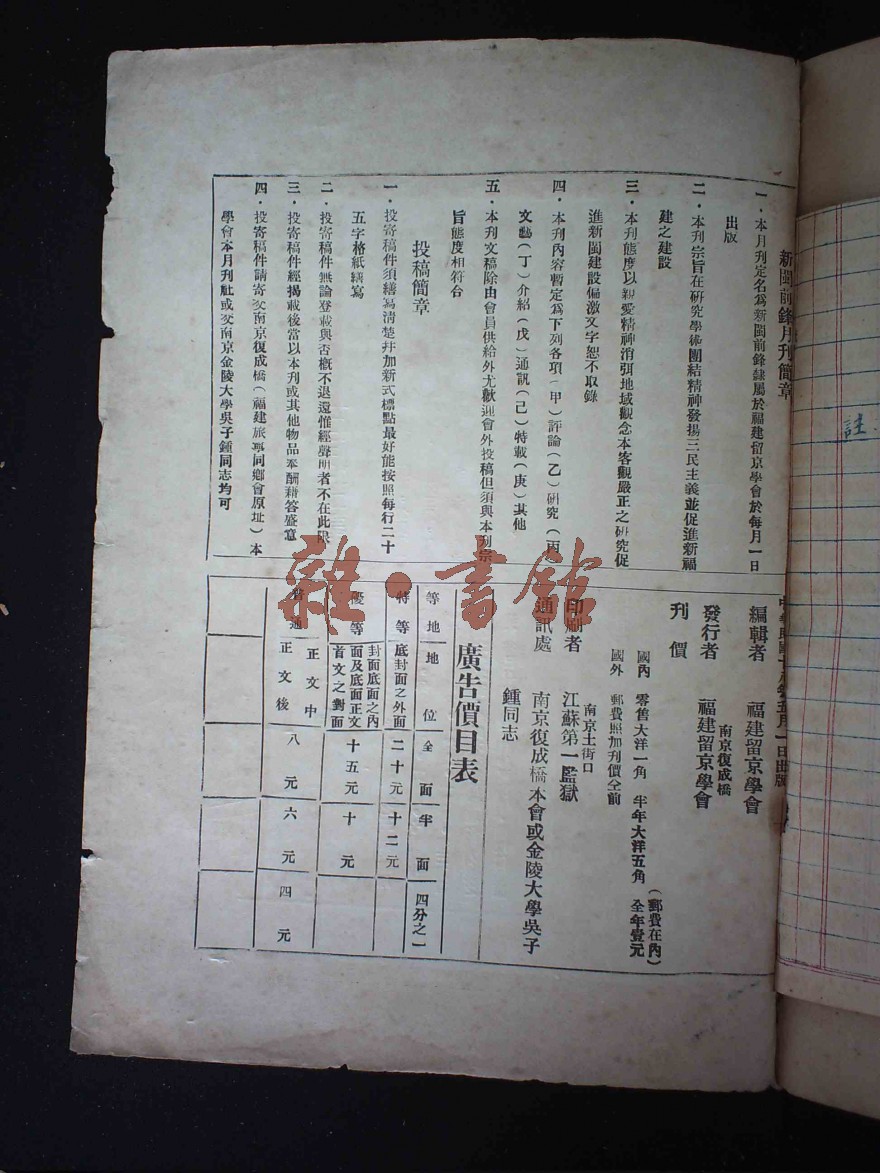 新閩前鋒月刊簡章
一．本月刊定名爲新閩前鋒隸屬於福建留京學會於每月一日
出版
二．本刊宗旨在研究學術團結精神發揚三民主義並促進新福
建之建設
三．本刊態度以親愛精神消弭地域觀念本客觀嚴正之研究促
進新閩建設偏激文字恕不取錄
四．本刊內容暫定爲下列各項（甲）評論（乙）研究（丙）
文藝（丁）介紹（戊）通訊（己）特載（庚）其他
五．本刊文稿除由會員供給外尤歡迎會外投稿但須與本刊宗
旨態度相符合
投稿簡章
一．投寄稿件須繕寫清楚并加新式標點最好能按照每行二十
五字格紙繕寫
二．投寄稿件無論登載與否概不退還惟經聲明者不在此限
三．投寄稿件經揭載後當以本刊或其他物品奉酬藉答盛意
四．投寄稿件請寄交南京復成橋（福建旅寧同鄉會原址）本
學會本月刊社或交南京金陵大學吳子鍾同志均可
中華民國十八年五月一日出版
編輯者 福建留京學會
南京復成橋
發行者 福建留京學會
刊價
國內 零售大洋一角 半年大洋五角 全年壹元
（郵費在內）
國外 郵費照加刊價仝前
南京土街口
印刷者 江蘇第一監獄
通訊處 南京復成橋本會或金陵大學吳子
鍾同志
廣告價目表
等地 地位 全面 半面 四分之一
特等 底封面之外面 二十元 十二元
優等 封面底面之內面及底面正文首文之對面 十五元 十元
普通 正文中 正文後 八元 六元 四元
註
雜·書館